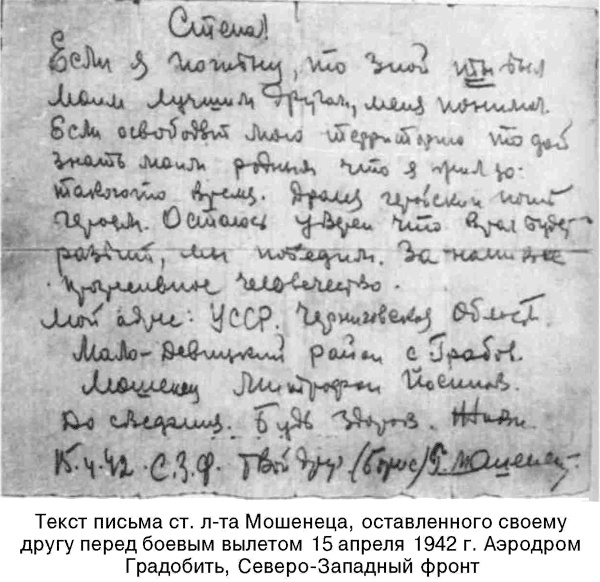 Степа!
Если я погибну, то знай ты был
моим лучшим другом, меня понимал.
Если освободят мою территорию то дай
знать моим родным что я жил до
такого-то время. Дрался геройски погиб
героем. Остаюсь уверен что враг будет
разбит, мы победим. За нами все
прогрессивное человечество.
Мой адрес: УССР. Черниговская област.
Мало-Девицкий район с Грабов.
Мошенец Митрофан
До свединия. Будь здоров. Живи.
15.4.42. С.З.Ф. Твой друг (Борис) Мошенец.
Текст письма ст. л-та Мошенеца, оставленного своему
другу перед боевым вылетом 15 апреля 1942 г. Аэродром
Градобить, Северо-Западный фронт